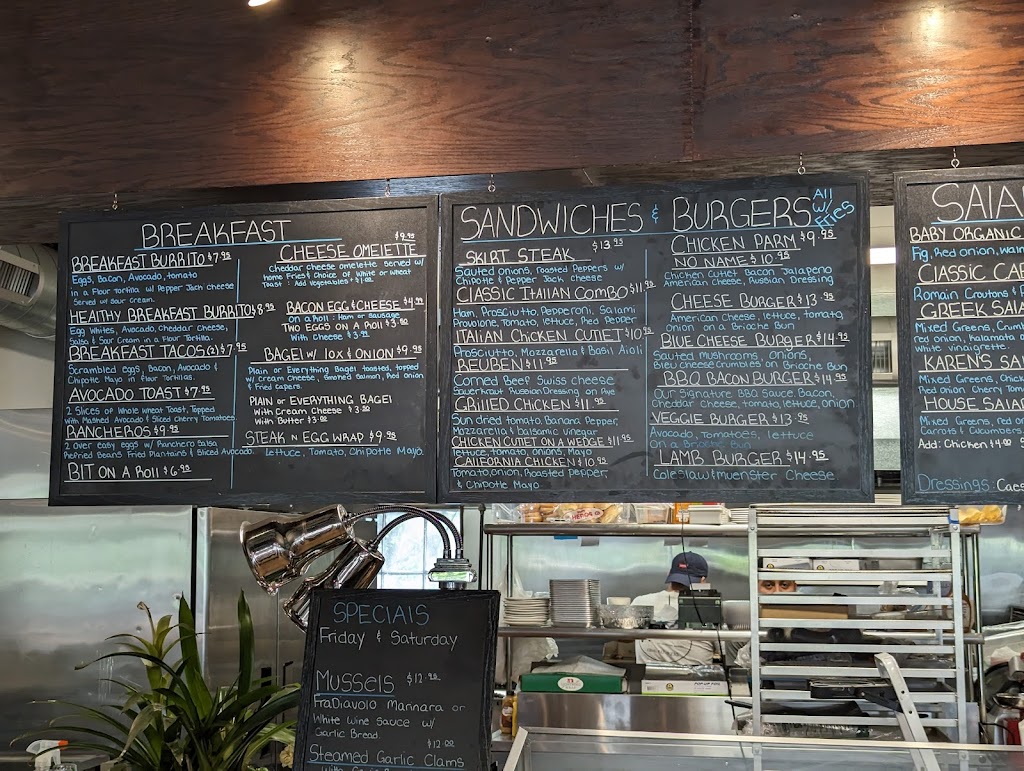 BREAKFAST
BREAKFAST BURRITO $7.95
Eggs, Bacon, Avocado, tomato
in a Flour tortilla w/ Pepper Jack cheese
Served w/ sour cream.
HEALTHY BREAKFAST BURRITO $8.95
Egg Whites, Avocado, Cheddar Cheese,
Salsa & Sour Cream in a Flour Tortilla.
BREAKFAST TACOS (2) $7.95
Scrambled eggs, Bacon, Avocado &
Chipotle Mayo in Flour Tortillas.
AVOCADO TOAST $7.95
2 Slices of Whole wheat Toast, Topped
With Mashed Avocado & Sliced Cherry Tomatoes
RANCHEROS $9.95
2 over easy eggs w/ Ranchero Salsa
Refried Beans Fried Plantains & Sliced Avocado.
BLT ON A ROLL $6.95
$9.95
CHEESE OMELETTE
Cheddar cheese omelette served w/
Home Fries & Choice of White or wheat
Toast : Add Vegetables
BACON EGG & CHEESE $4.99
on a Roll : Ham or Sausage
TWO EGGS ON A ROLL
With Cheese
BAGEL W/ LOX & ONION $9.95
Plain or Everything Bagel toasted, topped
w/ Cream Cheese, Smoked Salmon, Red onion
& Fried Capers.
PLAIN OR EVERYTHING BAGEL
With Cream Cheese
With Butter
STEAK N EGG WRAP $9.95
Lettuce, Tomato, Chipotle Mayo.
SANDWICHES & BURGERS
All
w/
Fries
SKIRT STEAK $13.95
Sauted onions, roasted Peppers w/
Chipotle & Pepper Jack cheese
CLASSIC ITALIAN COMBO $11.95
Ham, Prosciutto, Pepperoni, Salami
Provolone, Tomato, lettuce, Red Pepper
ITALIAN CHICKEN CUTLET $10.95
Prosciutto, Mozzarella & Basil Aioli
REUBEN $11.95
Corned Beef Swiss cheese
Sauerkraut Russian Dressing on Rye
GRILLED CHICKEN $11.95
Sun dried tomato, Banana Pepper,
Mozzarella & Balsamic Vinegar
CHICKEN CUTLET ON A WEDGE $11.95
lettuce, tomato, onions, Mayo
CALIFORNIA CHICKEN $10.95
Tomato, onion, Roasted Pepper,
& Chipotle Mayo
CHICKEN PARM $9.95
NO NAME $10.95
Chicken Cutlet Bacon Jalapeno
American Cheese, Russian Dressing
CHEESE BURGER $13.95
American Cheese, lettuce, tomato,
onion on a Brioche Bun
BLUE CHEESE BURGER $14.95
Sauted Mushrooms, Onions,
Bleu cheese Crumbles on Brioche Bun
BBQ BACON BURGER $14.95
Our Signature BBQ Sauce, Bacon,
Cheddar Cheese, tomato, lettuce, onion
VEGGIE BURGER $13.95
Avocado, Tomatoes, lettuce
on a Brioche Bun
LAMB BURGER $14.95
Coleslaw + muenster Cheese
SALA
BABY ORGANIC
Fig, Red onion,
CLASSIC
Romain Croutons &
GREEK
Mixed Greens,
red onion, Kalamata
White vinaigrette
KAREN'S
Mixed Greens,
Red Onion Cherry
HOUSE
Mixed Greens, Red
Carrots & Cucumbers
Add: Chicken
Dressings:
SPECIALS
Friday & Saturday
MUSSELS $12.00
FraDiavolo Mannara or
White Wine Sauce w/
Garlic Bread.
$12.00
Steamed Garlic Clams